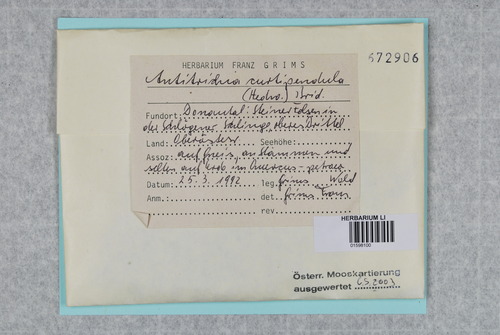 672906
HERBARIUM FRANZ GRIMS
Antitrichia curtipendula
(Hedw.) Brid.
Fundort: Donautal: Steinerfelsen in
der Schlögener Schlinge, oberes Drittel
Land: Oberösterr. Seehöhe:
Assoz: auf Gneis, an Stämmen und
selten auf Erde im Quercus-petraea
Datum: 25.3.1992 leg. Grims Wald
Anm.: det. Grims Franz
rev.
HERBARIUM LI
01598100
Österr. Mooskartierung
ausgewertet GS 2003